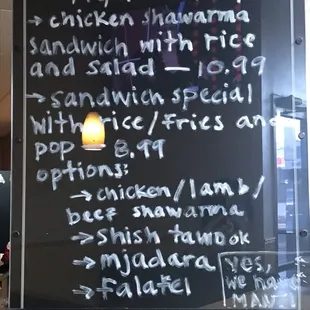 → chicken shawarma
sandwich with rice
and salad - 10.99
→ Sandwich special
with rice/fries and
pop 8.99
options:
→ chicken/lamb/
beef shawarma
→ shish tawook
→ mjadara
→ falafel
Yes,
we have
MANTI!